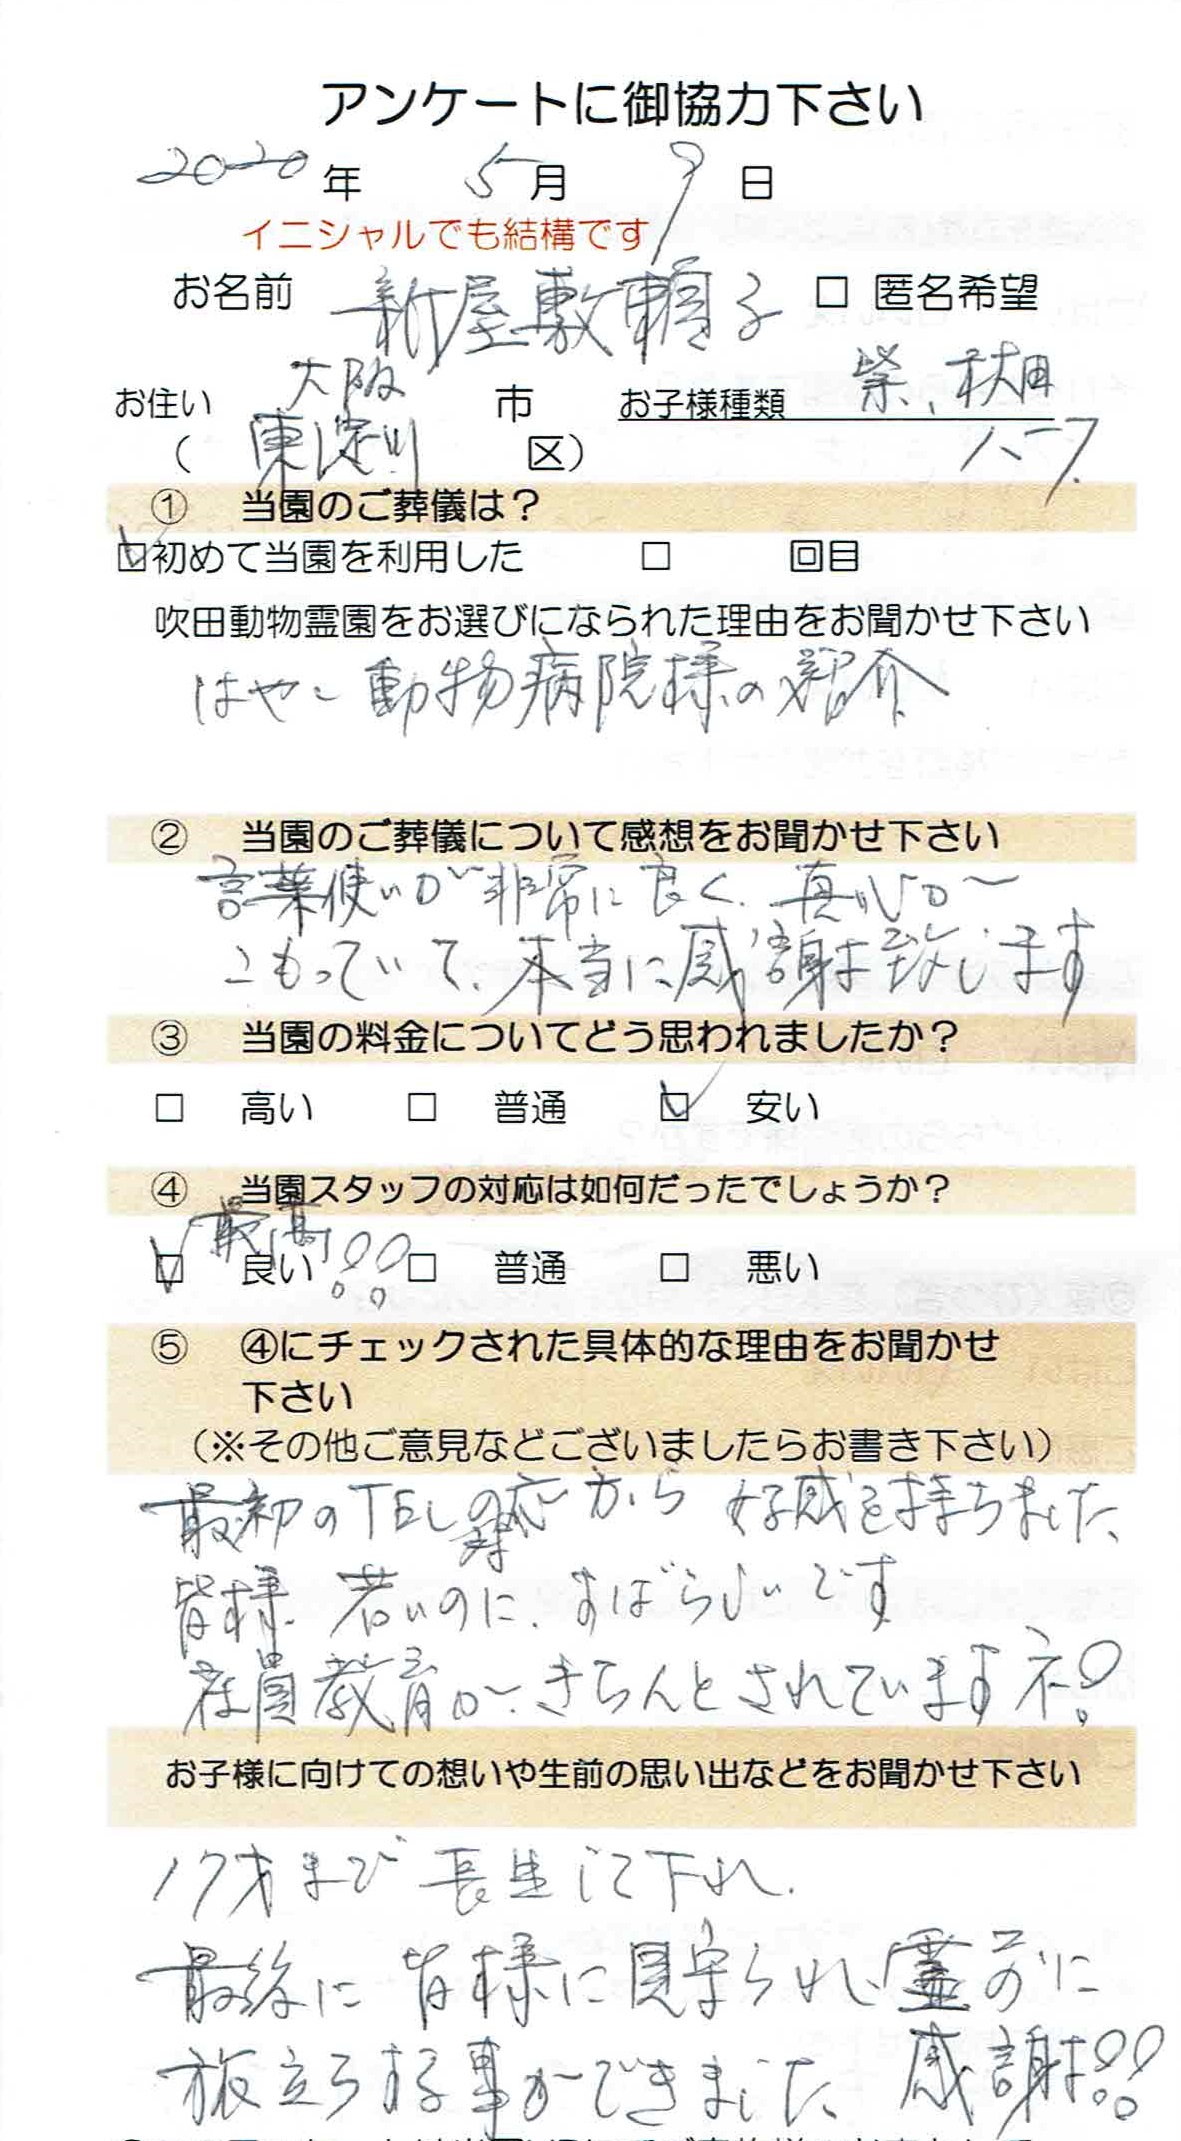 アンケートに御協力下さい
2020年 5月 9日
イニシャルでも結構です
お名前 新屋敷 子 □ 匿名希望
お住い 大阪 市 お子様種類 柴、秋田
( 東淀川 区) ハーフ
① 当園のご葬儀は？
☑初めて当園を利用した □ 回目
吹田動物霊園をお選びになられた理由をお聞かせ下さい
はやし動物病院様の紹介
② 当園のご葬儀について感想をお聞かせ下さい
言葉使いが非常に良く、真心が
こもっていて、本当に感謝致します
③ 当園の料金についてどう思われましたか？
□ 高い □ 普通 ☑ 安い
④ 当園スタッフの対応は如何だったでしょうか？
最高!!
☑ 良い □ 普通 □ 悪い
⑤ ④にチェックされた具体的な理由をお聞かせ
下さい
（※その他ご意見などございましたらお書き下さい）
最初のTELの対応から 好感を持ちました、
皆様 若いのに、すばらしいです
社員教育が、きちんとされていますネ！
お子様に向けての想いや生前の思い出などをお聞かせ下さい
17才まで長生して下れ、
最後に 皆様に見守られ、霊 に
旅立ちする事ができました 感謝!!